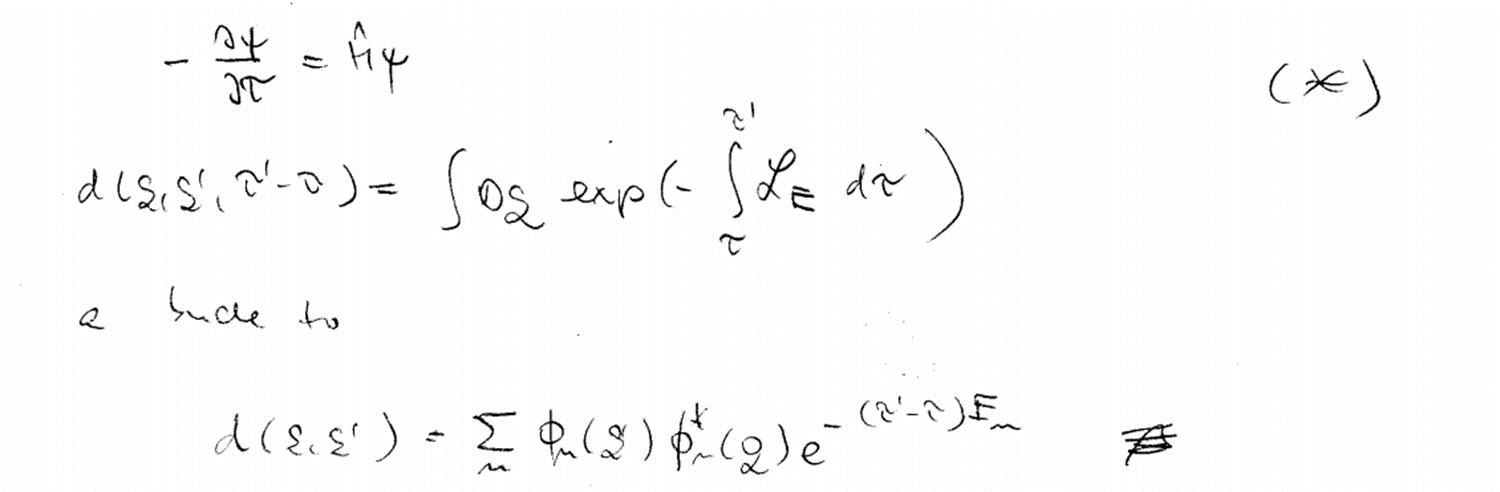 - ∂ψ/∂τ = Ĥψ (*)
d(q, q', τ'-τ) = ∫ Dq exp(- ∫_τ^τ' ℒ_E dτ)
a bude to
d(q, q') = Σ_n ϕ_n(q) ϕ_n^*(q) e^{-(τ'-τ)E_n}